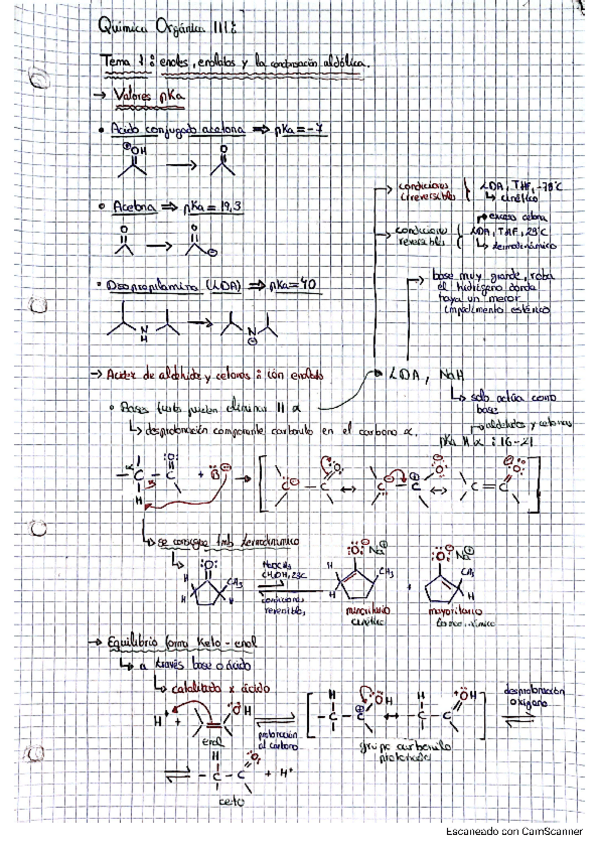 Química Orgánica III:
Tema 1: enoles, enolatos y la condensación aldólica.
→ Valores pKa
• Ácido conjugado acetona ⇒ pKa = -7
OH
O
→ condiciones irreversibles { LDA, THF, -78°C
↳ cinético
• Acetona ⇒ pKa = 19,3
exceso cetona
→ condiciones reversibles { LDA, THF, 25°C
↳ termodinámico
O
O
• Diisopropilamina (LDA) ⇒ pKa = 40
→ base muy grande, roba
el hidrógeno donde
haya un menor
impedimento estérico
N
H
N
→ Acidez de aldehído y cetonas: ión enolato
LDA, NaH
↳ solo actúa como
base
• Bases fuertes pueden eliminar H α
→ aldehídos y cetonas
↳ desprotonación componente carbonilo en el carbono α.
pKa H α : 16-21
- C - C + B → [ C - C ↔ C - C ↔ C = C ]
H
↳ se consigue
termodinámico
:O:
CH₃
H
CH₃OH, 25°C
condiciones
reversibles
:O: Na
H
CH₃
minoritario
cinético
+
:O: Na
CH₃
H
mayoritario
termodinámico
→ Equilibrio forma Keto-enol
↳ a través base o ácido
↳ catalizado x ácido
H⁺ +
OH
enol
protonación
al carbono
[ - C - C OH ↔ - C - C OH ]
grupo carbonilo
protonado
desprotonación
oxígeno
H
- C - C O + H⁺
ceto
Escaneado con CamScanner